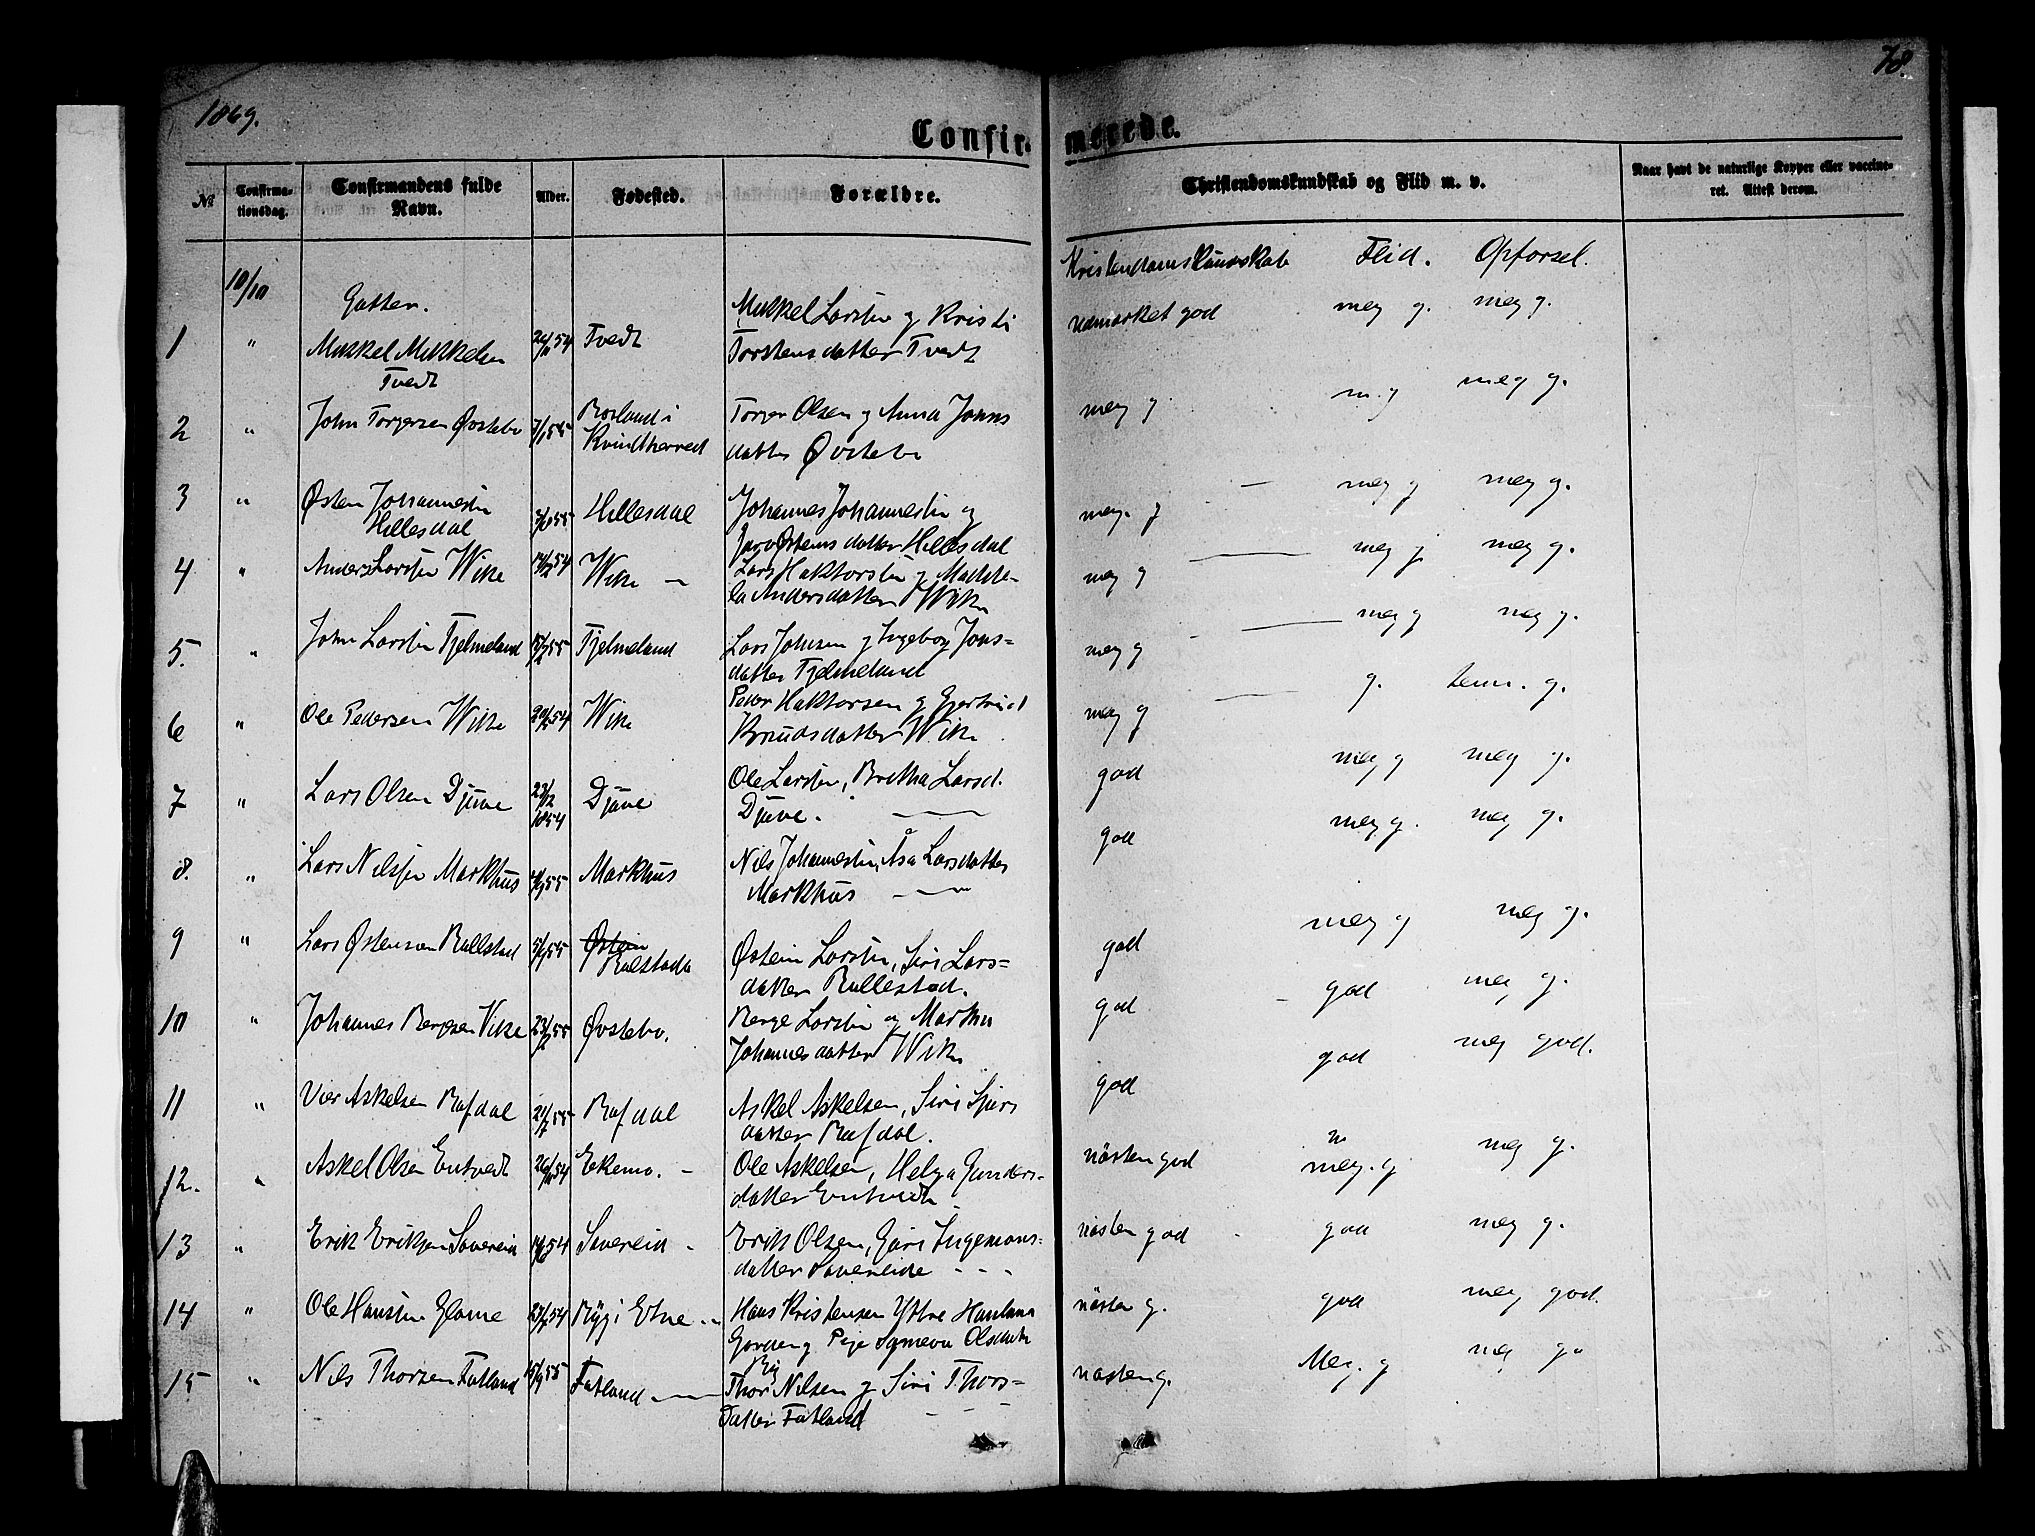 1869.
78.
Confirmerede.
№
Confirmationsdag.
Confirmandens fulde Navn.
Alder.
Fødested.
Forældre.
Christendomskundskab og Flid m. v.
Naar havt de naturlige Kopper eller vaccineret. Attest derom.
10/10
Gutter.
Kristendomskundskab Flid. Opførsel.
1 " Mikkel Mikkelsen Tvedt 54 Tvedt Mikkel Larsen og Kristi Torstensdatter Tvedt udmærket god meg g. meg g.
2 " John Torgersen Øvstebø 55 i Kvindherred Torger Olsen og Anna Johnsdatter Øvstebø meg g m. g meg g.
3 " Østen Johannessen Hillesdal 55 Hillesdal Johannes Johannessen og Østensdatter Hillesdal meg. g — meg g meg g.
4 " Anders Larsen Wike 54 Wike — Lars Haktorsen og Andersdatter Wike meg g — meg g meg g.
5. " John Larsen Fjelmeland 55 Fjelmeland Lars Johnsen og Ingeborg Jons=datter Fjelmeland meg g — meg g meg g.
6 " Ole Pedersen Wike 54 Wike Peder Haktorsen og Gjertrud Knudsdatter Wike meg g — g. g.
7 " Lars Olsen Djuve 23/12 1854 Djuve Ole Larsen, Britha Larsd. Djuve. — god meg g meg g.
8. " Lars Nilssen Markhus 55 Markhus Nils Johannessen, Åsa Larsdatter Markhus — god meg g. meg g.
9 " Lars Østenson Rullestad 55 Østein Rulestad Østein Larsen, Siri Lars=datter Rullestad. god meg g meg g.
10 " Johannes Bergesen Vike 55 Øvstebø. Berge Larsen og Martha Johannesdatter Wike god - god meg g.
11 " Askelsen Rafdal 55 Rafdal Askel Askelsen, Siri datter Rafdal. god god meg god.
12. " Askel Olsen Entvedt 54 Ekemo. - Ole Askelsen, Helga Gunders=datter Entvedt næsten god meg. g meg g.
13 " Erik Eriksen Søvereid 54 Søvereid - Erik Olsen, Guri Ingemons=datter Søvereide - - - næsten god god meg g.
14 " Ole Hansen Glame 54 i Etne Hans Kristensen næsten g. god meg god.
15 " Nils Thorsen Fatland 55 Fatland — Thor Nilsen og Siri Thors=datter Fatland - - - næsten g. Meg. g meg g